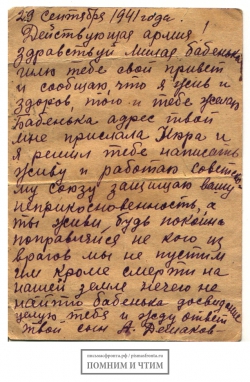 23 сентября 1941 года.
Действующая армия!
Здравствуй милая бабенька
шлю тебе свой привет
и сообщаю, что я жив и
здоров, того и тебе желаю
Бабенька адрес твой
мне прислала Нюра и
я решил тебе написать
живу и работаю советско
му союзу защищаю вашу
неприкосновенность, а
ты живи, будь покойна
поправляйся не кого из
врагов мы не пустим
им кроме смерти на
нашей земле нечего не
найти бабенька досвидание
целую тебя и жду ответ
твой сын А.
письмасфронта.рф / pismasfronta.ru
ПОМНИМ И ЧТИМ